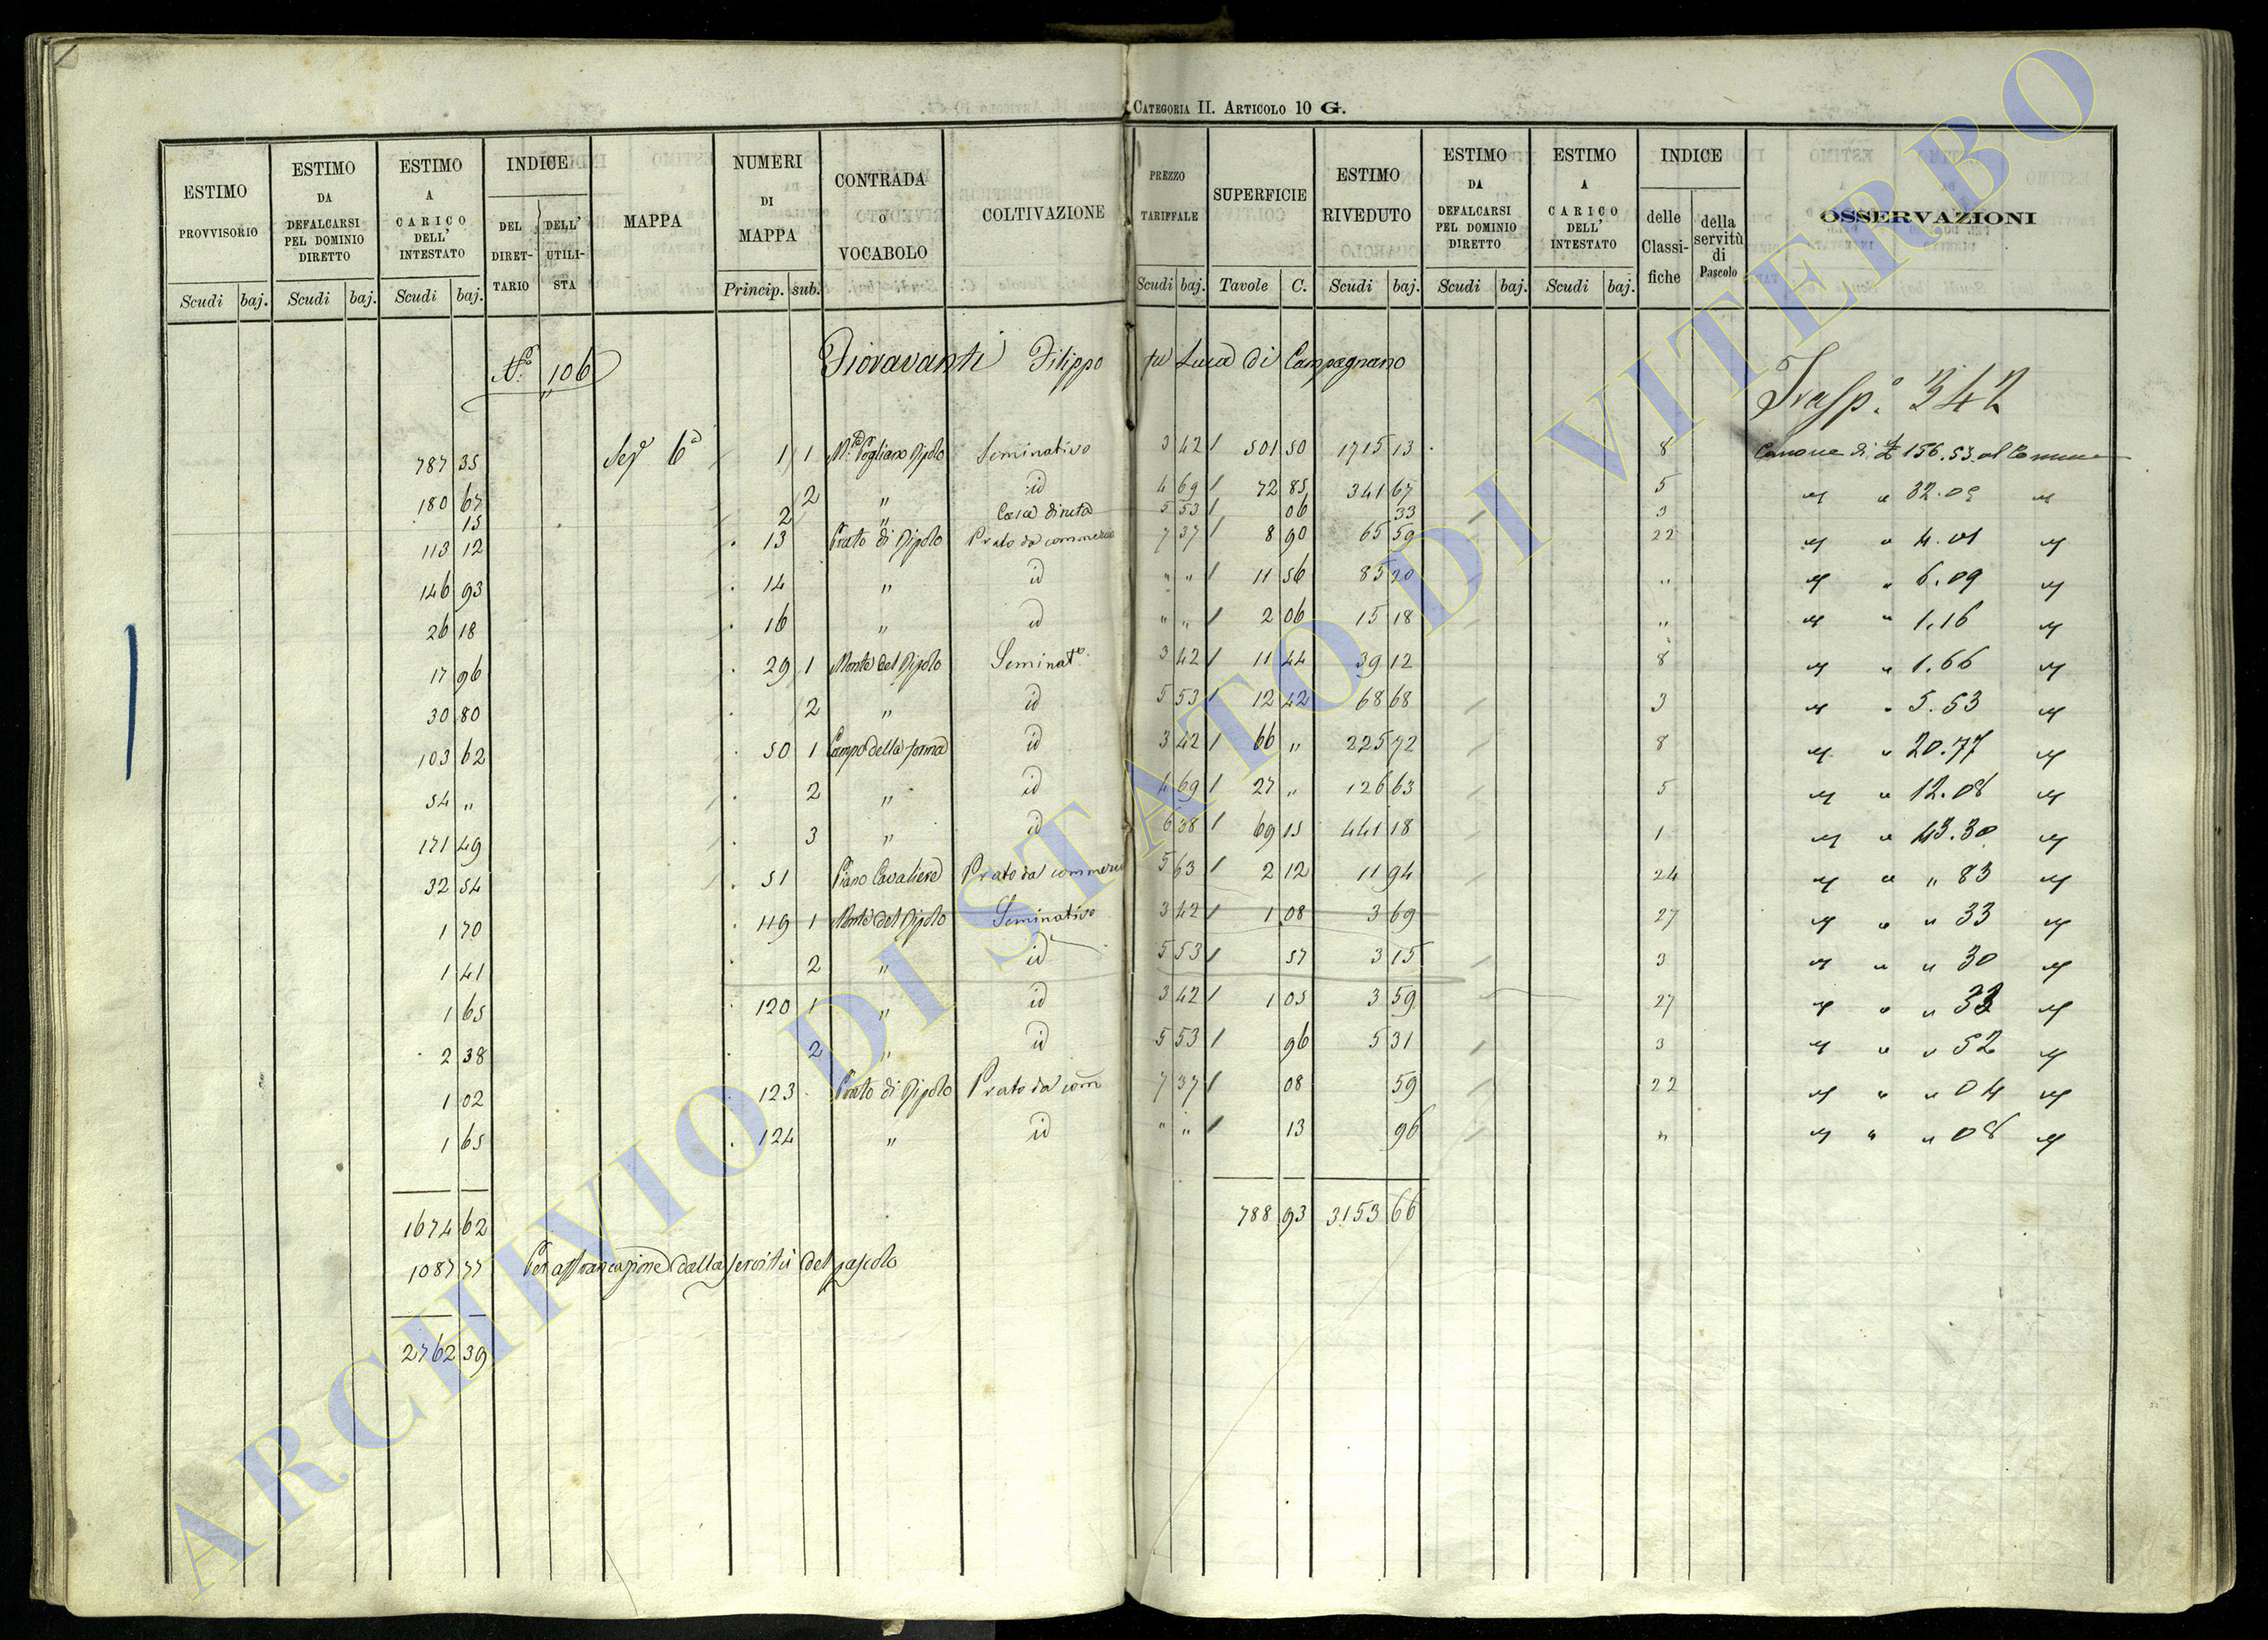 CATEGORIA II. ARTICOLO 10 G.
ESTIMO PROVVISORIO | ESTIMO DA DEFALCARSI PEL DOMINIO DIRETTO | ESTIMO A CARICO DELL' INTESTATO | INDICE DEL DIRETTARIO | DELL' UTILISTA | MAPPA | NUMERI DI MAPPA | CONTRADA O VOCABOLO | COLTIVAZIONE | PREZZO TARIFFALE | SUPERFICIE | ESTIMO RIVEDUTO | ESTIMO DA DEFALCARSI PEL DOMINIO DIRETTO | ESTIMO A CARICO DELL' INTESTATO | INDICE delle Classifiche | della servitù di Pascolo | OSSERVAZIONI
Scudi baj. Scudi baj. Scudi baj. Princip. sub. Scudi baj. Tavole C. Scudi baj. Scudi baj. Scudi baj.
N.º 106 Fioravanti Filippo fu Luca di Campagnano
Trasp.º 342
787 35 Sez.e 6a 1 1 Seminativo 3 42 501 50 1715 13 8 Canone di £ 156.53 al Comune
180 67 2 " id 4 69 72 85 341 67 5 " " 32.09 "
15 2 " Casa diruta 5 53 06 33 3
113 12 13 Prato di Pipolo Prato da commercio 7 37 8 90 65 59 22 " " 4.01 "
146 93 14 " id " " 11 56 85 20 " " " 6.09 "
26 18 16 " id " " 2 06 15 18 " " " 1.16 "
17 96 29 1 Monte del Pipolo Seminat.o 3 42 11 44 39 12 8 " " 1.66 "
30 80 2 " id 5 53 12 42 68 68 3 " " 5.53 "
103 62 50 1 Campo della forma id 3 42 66 " 225 72 8 " " 20.77 "
54 " 2 " id 4 69 27 " 126 63 5 " " 12.08 "
171 49 3 " id 6 38 69 15 441 18 1 " " 43.30 "
32 54 51 Piano Cavaliere Prato da commercio 5 63 2 12 11 94 24 " " " 83 "
1 70 119 1 Monte del Pipolo Seminativo 3 42 1 08 3 69 27 " " " 33 "
1 41 2 " id 5 53 57 3 15 3 " " " 30 "
1 65 120 1 " id 3 42 1 05 3 59 27 " " " 33 "
2 38 2 " id 5 53 96 5 31 3 " " " 52 "
1 02 123 Prato di Pipolo Prato da com 7 37 08 59 22 " " " 04 "
1 65 124 " id " " 13 96 " " " " 08 "
1674 62 788 93 3153 66
1087 77 Per affrancazione dalla servitù del pascolo
2762 39
ARCHIVIO DI STATO DI VITERBO